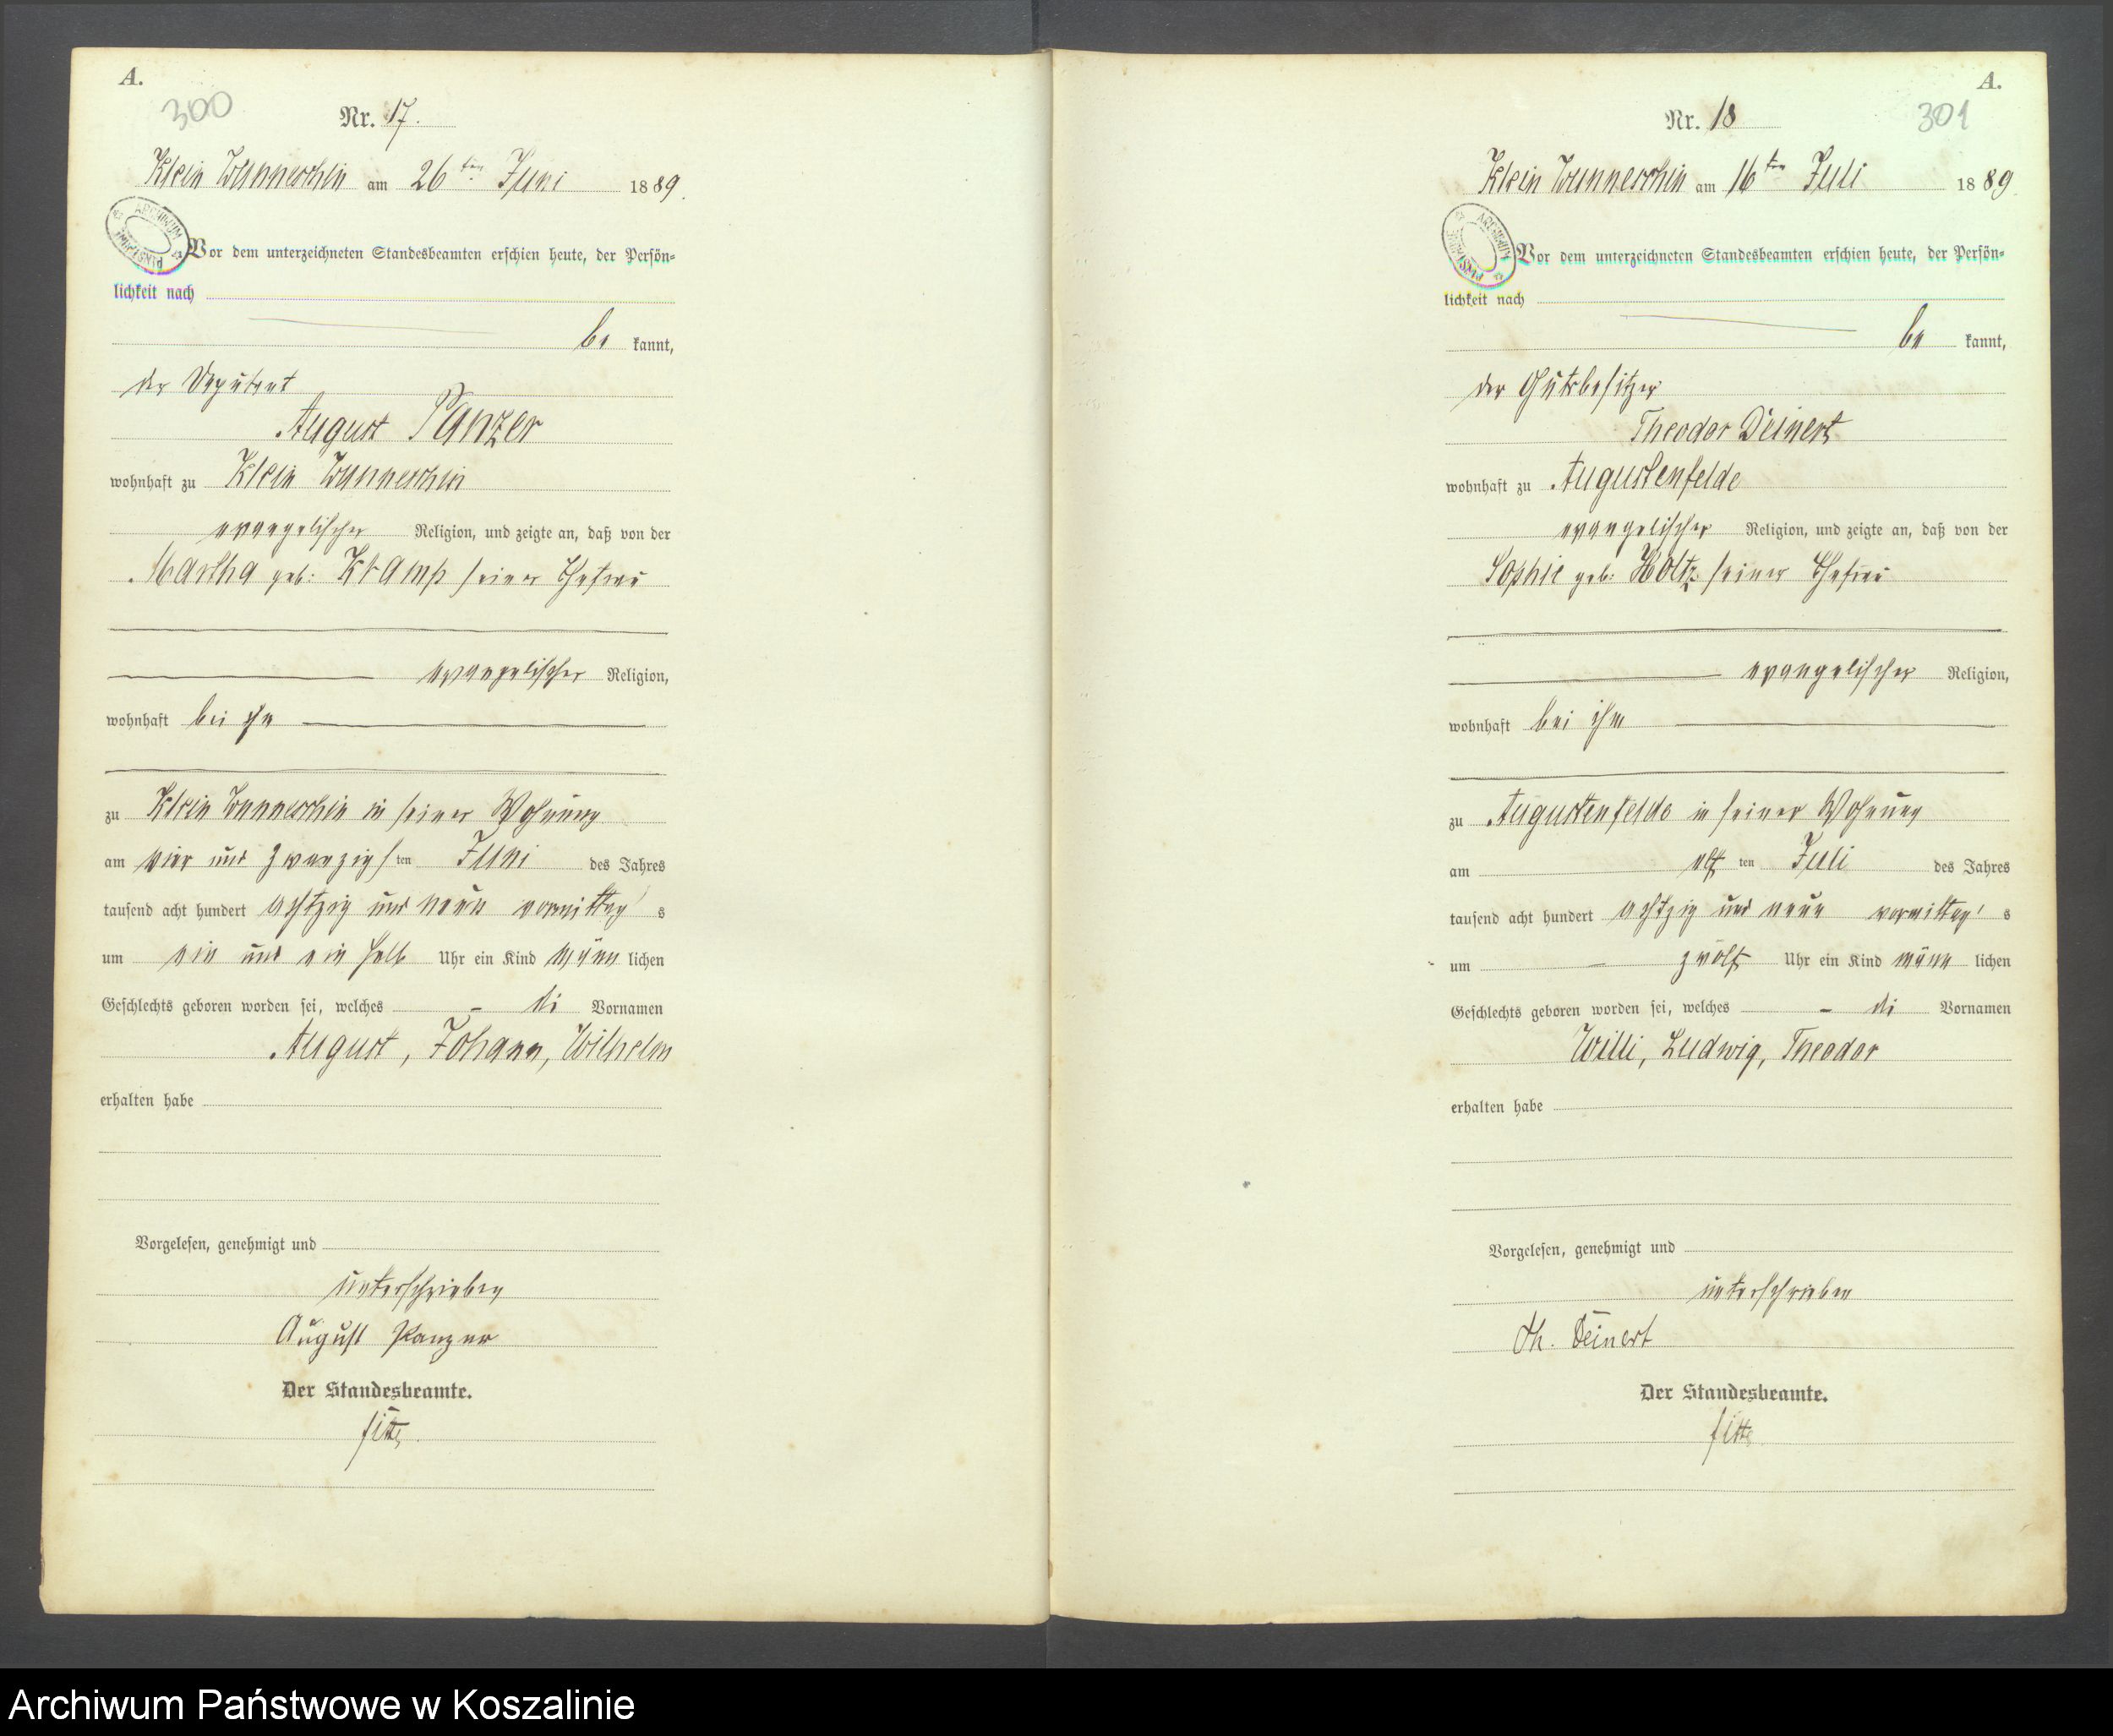 A.
300
Nr. 17.
Klein Wunneschin am 26ten Juni 1889.
ARCHIWUM PAŃSTWOWE
Vor dem unterzeichneten Standesbeamten erschien heute, der Persön-
lichkeit nach
be kannt,
der Deputant
August Panzer
wohnhaft zu Klein Wunneschin
evangelischer Religion, und zeigte an, daß von der
Martha geb: Kramp seiner Ehefrau
evangelischer Religion,
wohnhaft bei ihm
zu Klein Wunneschin in seiner Wohnung
am vier und zwanzigsten Juni des Jahres
tausend acht hundert achtzig und neun vormittags
um ein und ein halb Uhr ein Kind männlichen
Geschlechts geboren worden sei, welches die Vornamen
August, Johann, Wilhelm
erhalten habe
Vorgelesen, genehmigt und
unterschrieben
August Panzer
Der Standesbeamte.
A.
301
Nr. 18
Klein Wunneschin am 16ten Juli 1889.
ARCHIWUM
Vor dem unterzeichneten Standesbeamten erschien heute, der Persön-
lichkeit nach
be kannt,
der Gutsbesitzer
Theodor Deinert
wohnhaft zu Augustenfelde
evangelischer Religion, und zeigte an, daß von der
Sophie geb: Holtz seiner Ehefrau
evangelischer Religion,
wohnhaft bei ihm
zu Augustenfelde in seiner Wohnung
am elf ten Juli des Jahres
tausend acht hundert achtzig und neun vormittags
um zwölf Uhr ein Kind männlichen
Geschlechts geboren worden sei, welches die Vornamen
Willi, Ludwig, Theodor
erhalten habe
Vorgelesen, genehmigt und
unterschrieben
Th. Deinert
Der Standesbeamte.
Archiwum Państwowe w Koszalinie